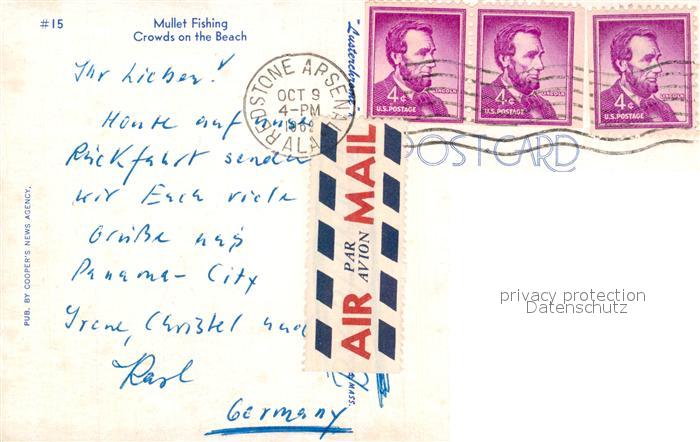 #15
Mullet Fishing
Crowds on the Beach
Ihr Lieben!
Heute auf
Rückfahrt senden
wir Euch viele
Grüße aus
Panama-City
Irene, Christel und
Karl
Germany
PUB. BY COOPER'S NEWS AGENCY,
"Lusterchrome"
MASS.
REDSTONE ARSENAL
OCT 9
4-PM
ALA
4¢
LINCOLN
U.S. POSTAGE
4¢
LINCOLN
U.S. POSTAGE
4¢
LINCOLN
U.S. POSTAGE
POSTCARD
AIR MAIL
PAR AVION
privacy protection
Datenschutz